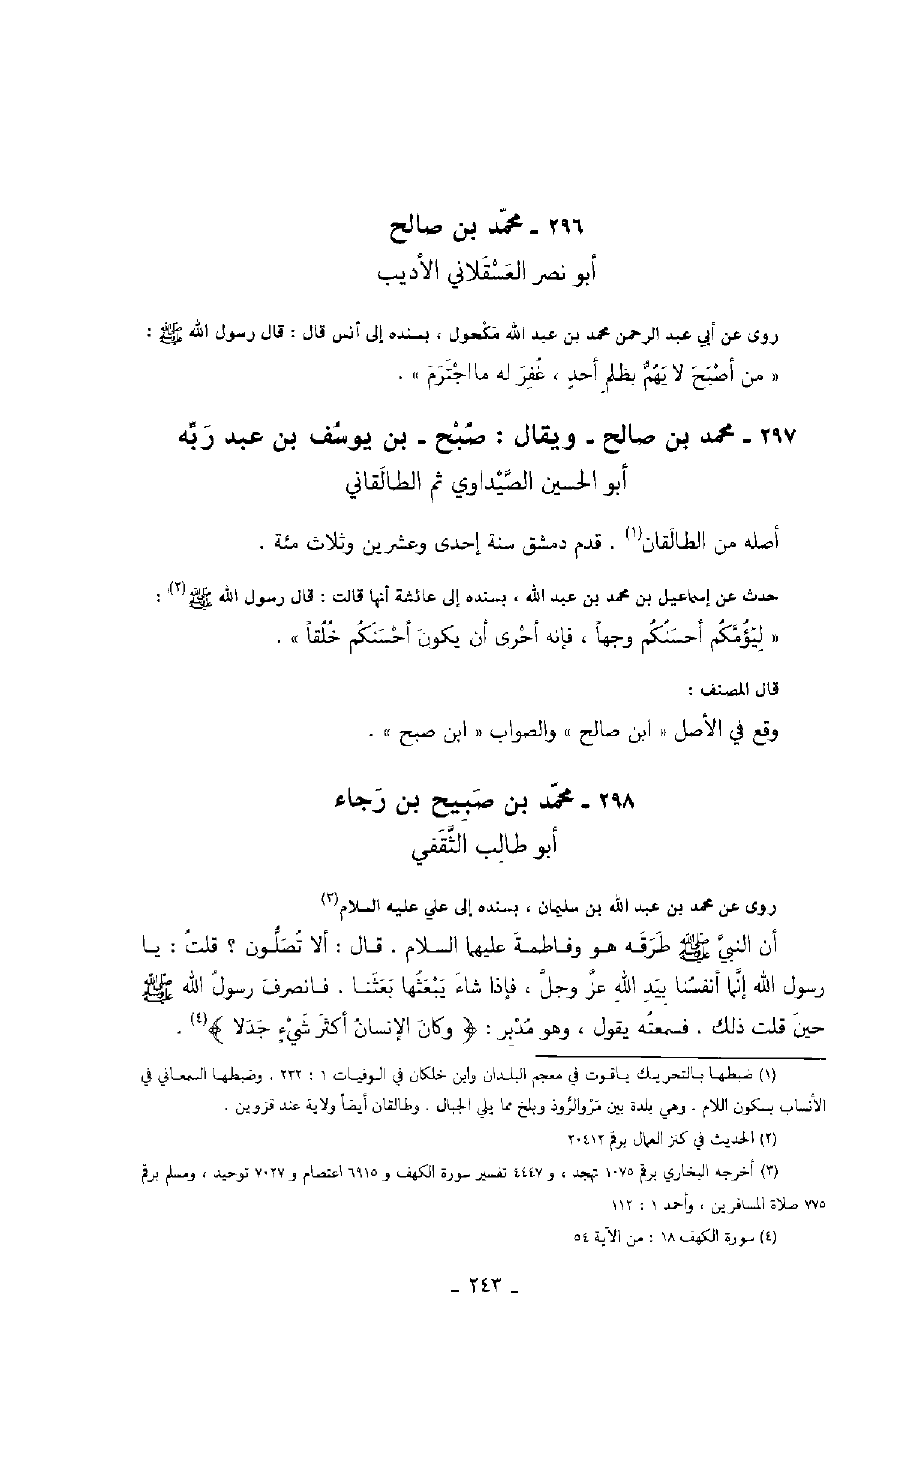 ٢٩٦ ـ محمّد بن صالح
أبو نصر العَسْقَلاني الأديب
روى عن أبي عبد الرحمن محمد بن عبد الله مَكْحول ، بسنده إلى أنس قال : قال رسول الله ﷺ :
« من أصْبَحَ لا يَهُمُّ بظلمِ أحدٍ ، غُفِرَ له مااجْتَرَمَ » .
٢٩٧ ـ محمد بن صالح ـ ويقال : صُبْح ـ بن يوسُف بن عبد رَبِّه
أبو الحسين الصَّيْداوي ثم الطالَقاني
أصله من الطالَقان(١) . قدم دمشق سنة إحدى وعشرين وثلاث مئة .
حدث عن إسماعيل بن محمد بن عبد الله ، بسنده إلى عائشة أنها قالت : قال رسول الله ﷺ(٢) :
« لِيَؤُمَّكُم أحسَنُكُم وجهاً ، فإنه أحْرى أن يكونَ أحْسَنَكُم خُلُقاً » .
قال المصنف :
وقع في الأصل « ابن صالح » والصواب « ابن صبح » .
٢٩٨ ـ محمّد بن صَبِيح بن رَجاء
أبو طالِب الثَّقَفي
روى عن محمد بن عبد الله بن سليمان ، بسنده إلى علي عليه السلام(٣)
أن النبيَّ ﷺ طَرَقَه هو وفاطمةَ عليها السلام . قال : ألا تُصَلُّون ؟ قلتُ : يا
رسول الله إنَّما أنفسُنا بِيَدِ اللهِ عزَّ وجلَّ ، فإذا شاءَ يَبْعَثُها بَعَثَنا . فانصرفَ رسولُ الله ﷺ
حينَ قلت ذلك . فسمعتُه يقول ، وهو مُدْبِر : ﴿ وكانَ الإنسانُ أكثَرَ شَيْءٍ جَدَلا ﴾(٤) .
(١) ضبطها بالتحريك ياقوت في معجم البلدان وابن خلكان في الوفيات ١ : ٢٣٢ . وضبطها السمعاني في
الأنساب بسكون اللام . وهي بلدة بين مَرْوالرُّوذ وبلخ مما يلي الجبال . وطالقان أيضاً ولاية عند قزوين .
(٢) الحديث في كنز العمال برقم ٢٠٤١٢
(٣) أخرجه البخاري برقم ١٠٧٥ تهجد ، و ٤٤٤٧ تفسير سورة الكهف و ٦٩١٥ اعتصام و ٧٠٢٧ توحيد ، ومسلم برقم
٧٧٥ صلاة المسافرين ، وأحمد ١ : ١١٢
(٤) سورة الكهف ١٨ : من الآية ٥٤
ـ ٢٤٣ ـ